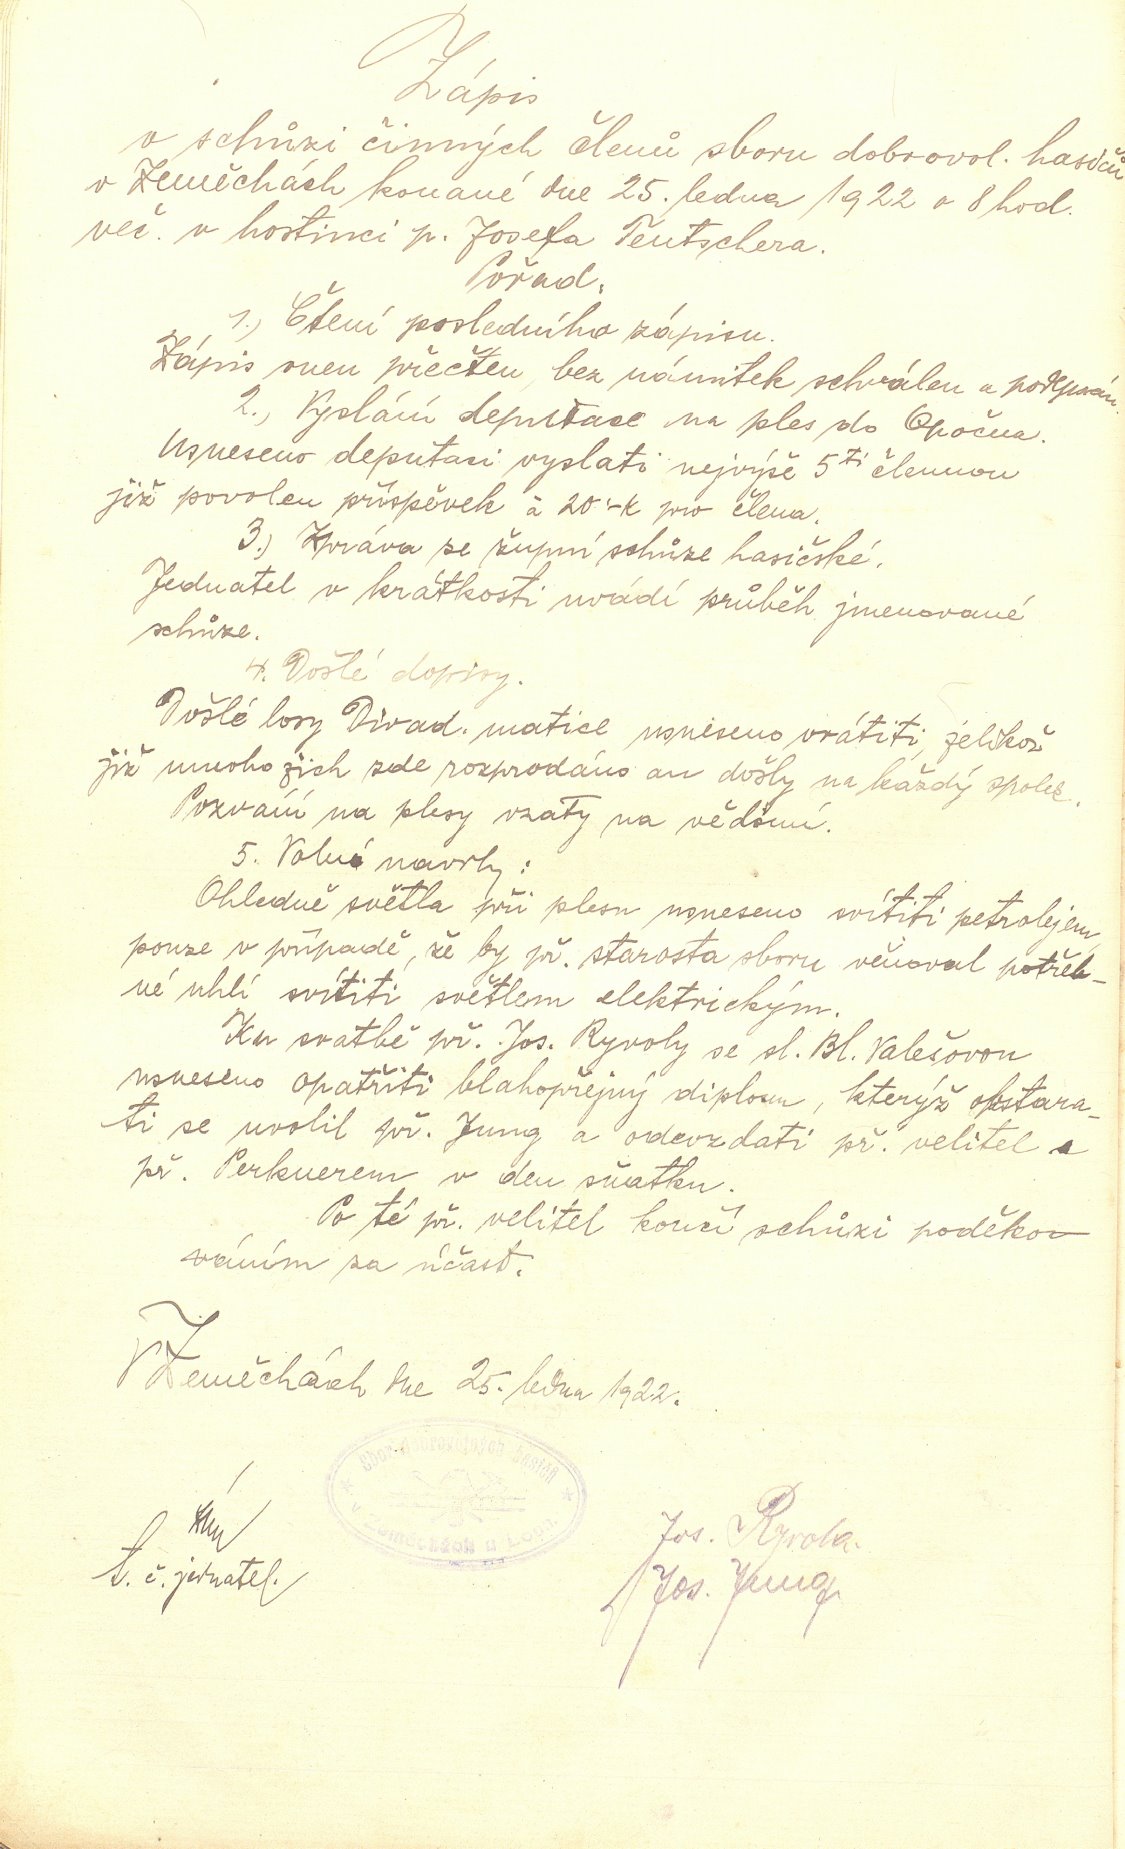 Zápis
o schůzi činných členů sboru dobrovol. hasičů
v Zeměchách konané dne 25. ledna 1922 o 8 hod.
več. v hostinci p. Josefa Teutschera.
Pořad.
1.) Čtení posledního zápisu.
Zápis onen přečten, bez námitek schválen a podepsán.
2., Vyslání deputace na ples do Opočna.
Usneseno deputaci vyslati nejvýše 5ti člennou
jíž povolen příspěvek à 20·-K pro člena.
3.) Zpráva ze župní schůze hasičské.
Jednatel v krátkosti uvádí průběh jmenované
schůze.
4. Došlé dopisy.
Došlé losy Divad. matice usneseno vrátiti, jelikož
již mnoho jich zde rozprodáno an došly na každý spolek.
Pozvání na plesy vzaty na vědomí.
5. Volné návrhy:
Ohledně světla při plesu usneseno svítiti petrolejem,
pouze v případě, že by př. starosta sboru věnoval potřeb-
né uhlí svítiti světlem elektrickým.
Ku svatbě př. Jos. Ryvoly se sl. Bl. Valešovou
usneseno opatřiti blahopřejný diplom, kterýž obstara-
ti se uvolil př. Jung a odevzdati př. velitel s
př. Perknerem v den sňatku.
Po té př. velitel končí schůzi poděko-
váním za účast.
V Zeměchách dne 25. ledna 1922.
Sbor dobrovolných hasičů
t. č. jednatel.
Jos. Ryvola.
Jos. Jung